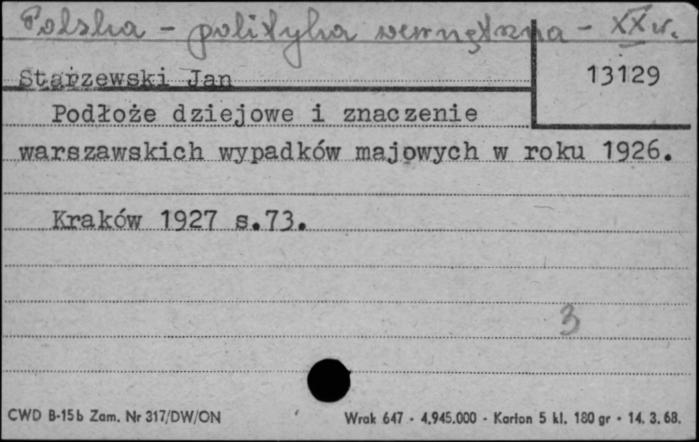 Polska - polityka wewnętrzna - XX w.
13129
Starzewski Jan
Podłoże dziejowe i znaczenie
warszawskich wypadków majowych w roku 1926.
Kraków 1927 s.73.
3
CWD B-15b Zam. Nr 317/DW/ON
Wrak 647 - 4.945.000 - Karton 5 kl. 180 gr - 14. 3. 68.